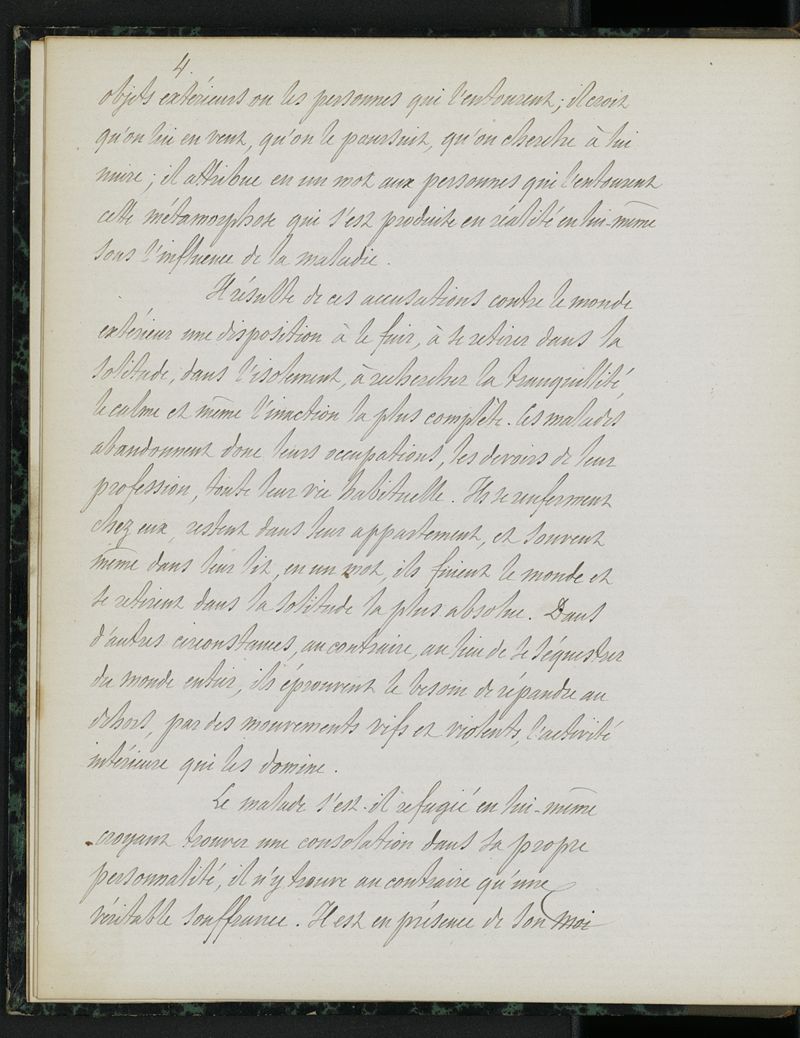 4
objets extérieurs ou les personnes qui l'entourent; il croit
qu'on lui en veut, qu'on le poursuit, qu'on cherche à lui
nuire; il attribue en un mot aux personnes qui l'entourent
cette métamorphose qui s'est produite en réalité en lui-même
sous l'influence de la maladie.
Il résulte de ces accusations contre le monde
extérieur une disposition à le fuir, à se retirer dans la
solitude, dans l'isolement, à rechercher la tranquillité,
le calme et même l'inaction la plus complète. Ces malades
abandonnent donc leurs occupations, les devoirs de leur
profession, toute leur vie habituelle. Ils se renferment
chez eux, restent dans leur appartement, et souvent
même dans leur lit, en un mot, ils fuient le monde et
se retirent dans la solitude la plus absolue. Dans
d'autres circonstances, au contraire, au lieu de se séquestrer
du monde entier, ils éprouvent le besoin de répandre au
dehors, par des mouvements vifs et violents, l'activité
intérieure qui les domine.
Le malade s'est-il refugié en lui-même
croyant trouver une consolation dans sa propre
personnalité, il n'y trouve au contraire qu'une
véritable souffrance. Il est en présence de son moi